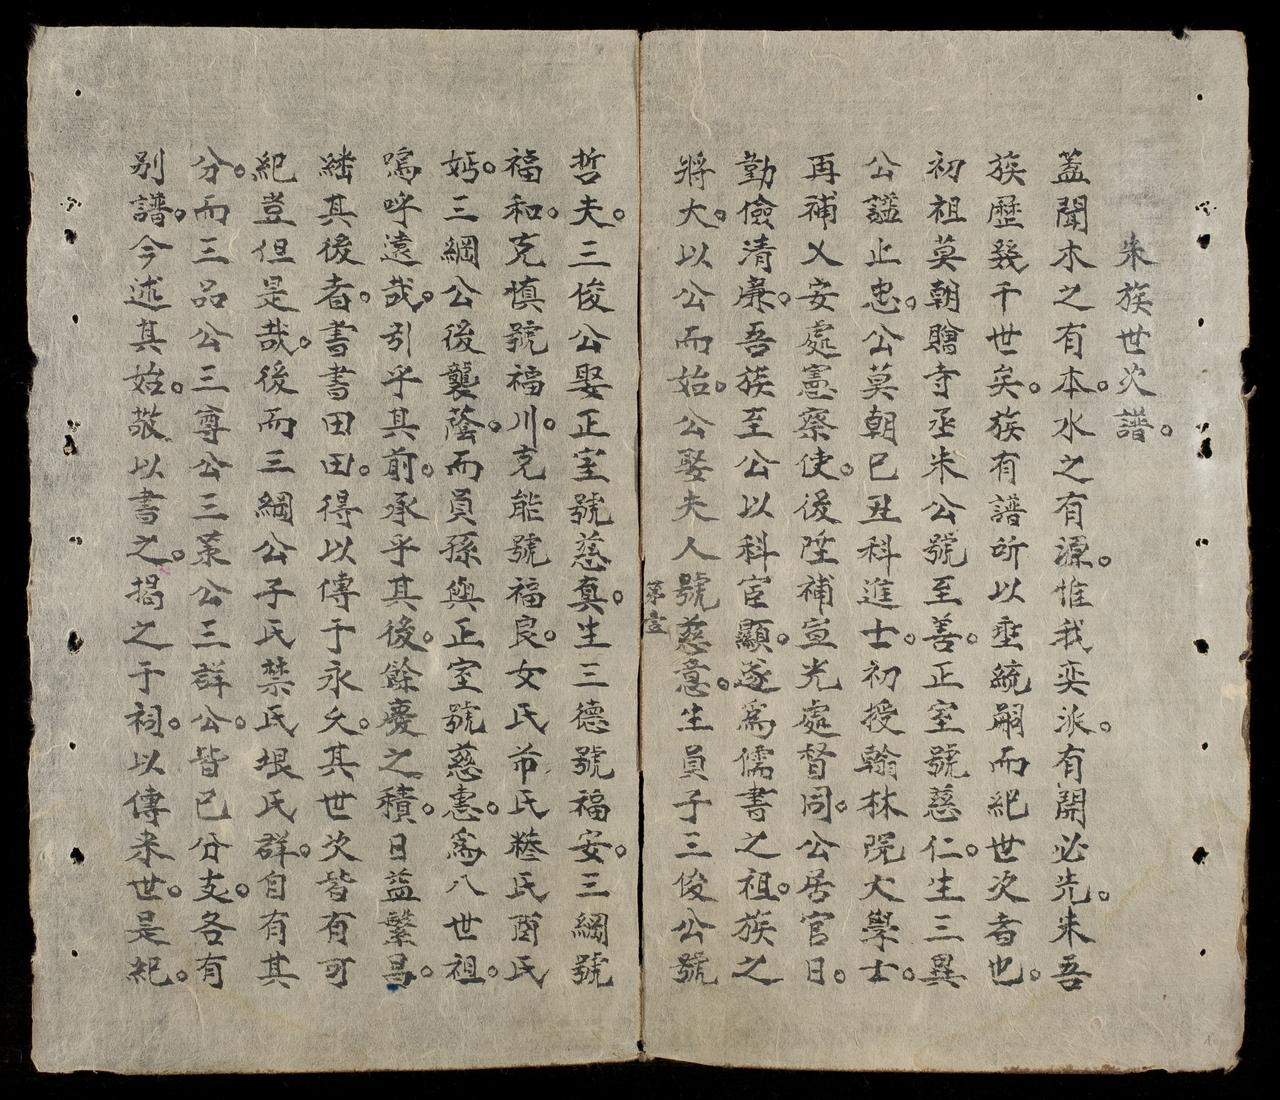 朱族世次譜
蓋聞木之有本水之有源惟我奕派有開必先朱吾
族歷幾千世矣族有譜所以垂統嗣而紀世次者也
初祖莫朝贈寺丞朱公號至善正室號慈仁生三異
公謚止忠公莫朝己丑科進士初授翰林院大學士
再補乂安處憲察使後陞補宣光處督同公居官日
勤儉清廉吾族至公以科宦顯遂為儒書之祖族之
將大以公而始公娶夫人號慈意生員子三俊公號
第壹
哲夫三俊公娶正室號慈真生三德號福安三綱號
福和克慎號福川克能號福良女氏氏氏氏
三綱公後襲蔭而員孫與正室號慈惠為八世祖
嗚呼遠哉引乎其前承乎其後餘慶之積日益繁昌
其後者書書田田得以傳于永久其世次皆有可
紀豈但是哉後而三綱公子氏禁氏垠氏群自有其
分而三品公三尊公三公三群公皆已分支各有
別譜今述其始敬以書之揭之于祠以傳來世是紀